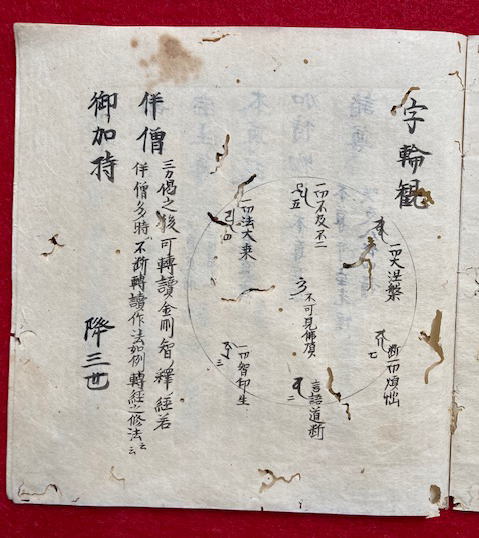 字輪観
一切大涅槃
断一切煩悩
七
一切不及不二
五
不可見佛頂
言語道断
二
一切法大乗
四
一切智印生
三
伴僧
三力偈之後可轉讀金剛智ノ釋ノ經若
伴僧多時不断轉讀作法如例轉経之修法云云
御加持 降三世